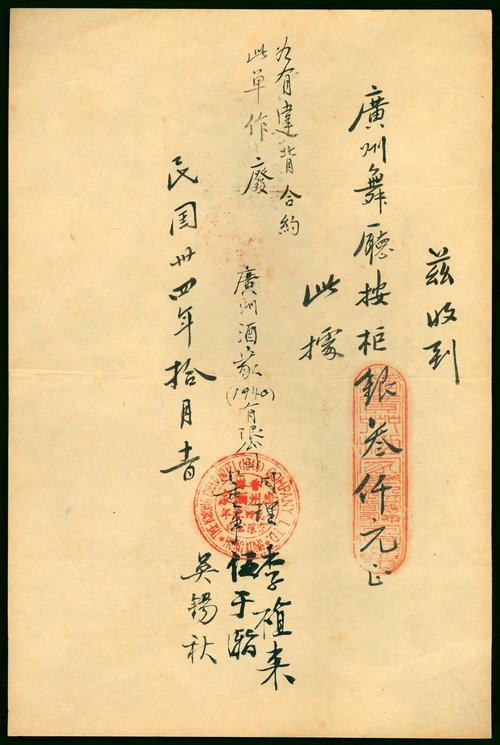 茲收到
廣州舞廳按柜銀叁仟元正
此據
如有違背合約
此单作廢
廣州酒家(1940)有限公司
司理 李植来
董事 伍于瀚
吳錫秋
民国卅四年拾月